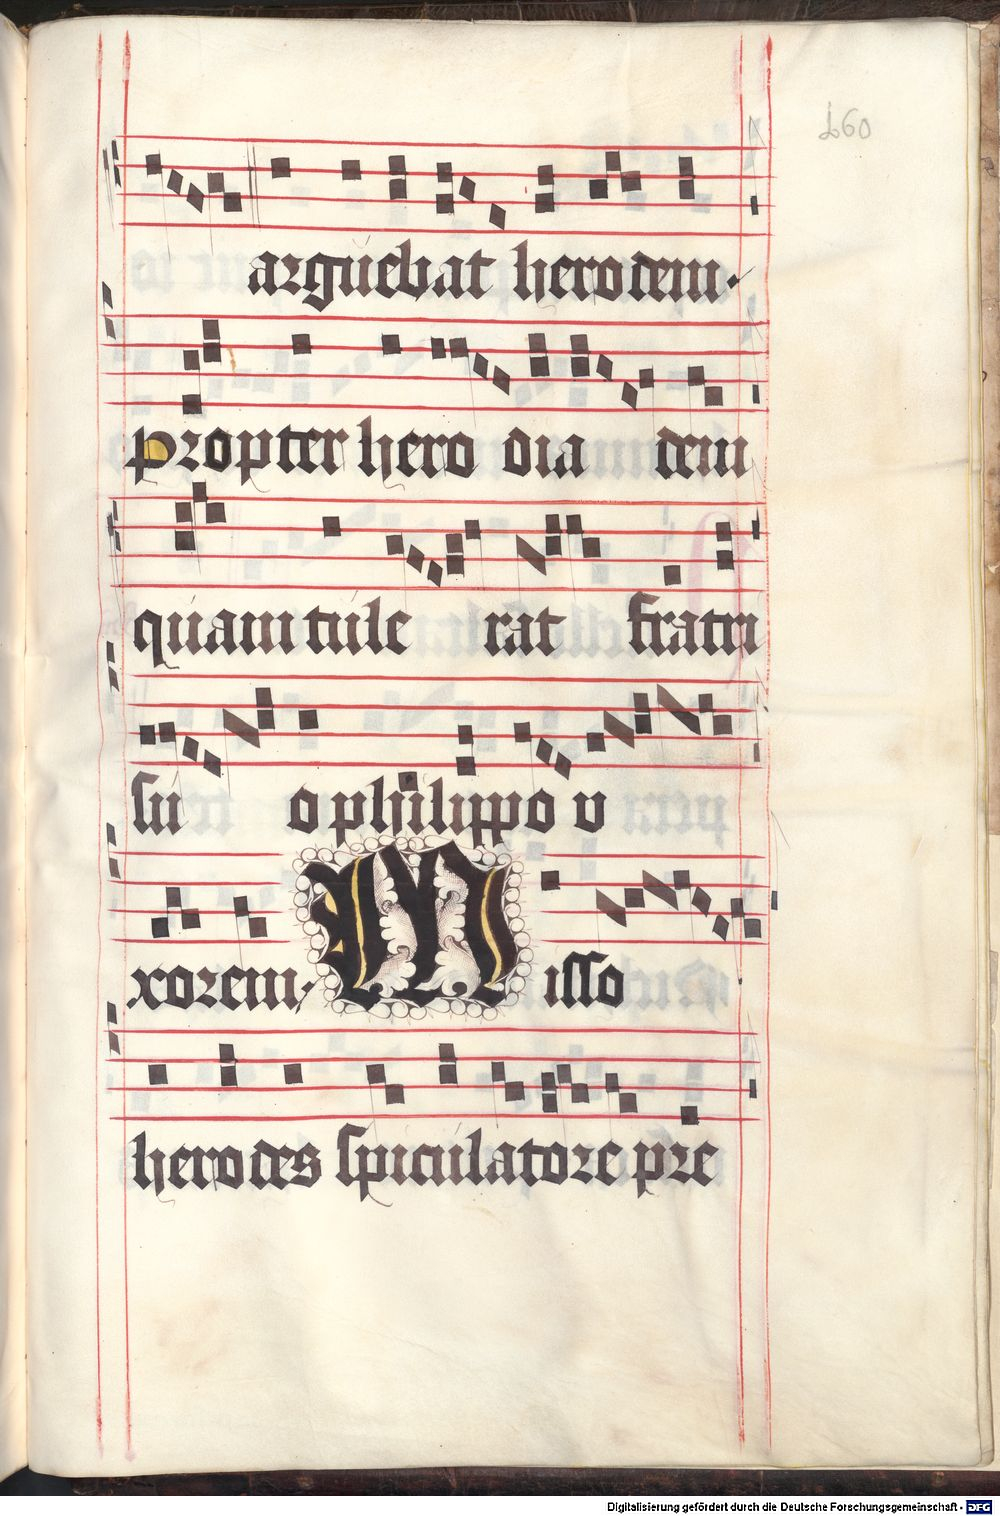 160
arguebat herodem·
propter hero dia dem
quam tule rat fratri
sui o philippo v
xorem· Misso
herodes spiculatore pre
Digitalisierung gefördert durch die Deutsche Forschungsgemeinschaft - DFG